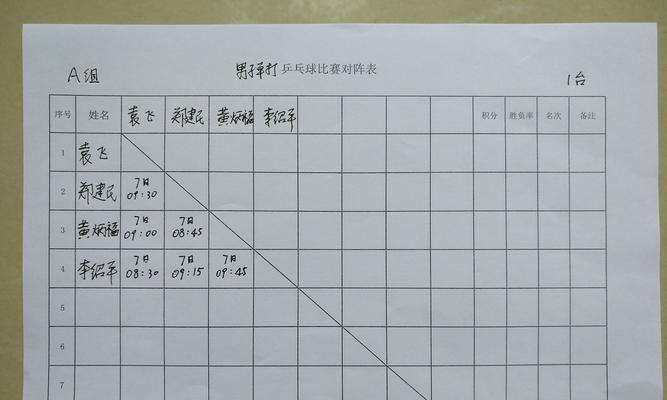 A组
男子单打 乒乓球比赛对阵表
1台
序号 姓名 袁飞 郑建民 黄炳福 李绍平 积分 胜负率 名次 备注
1 袁飞
2 郑建民 7日 09:30
3 黄炳福 7日 09:00 7日 08:45
4 李绍平 7日 08:30 7日 09:15 7日 09:45
5
6
7